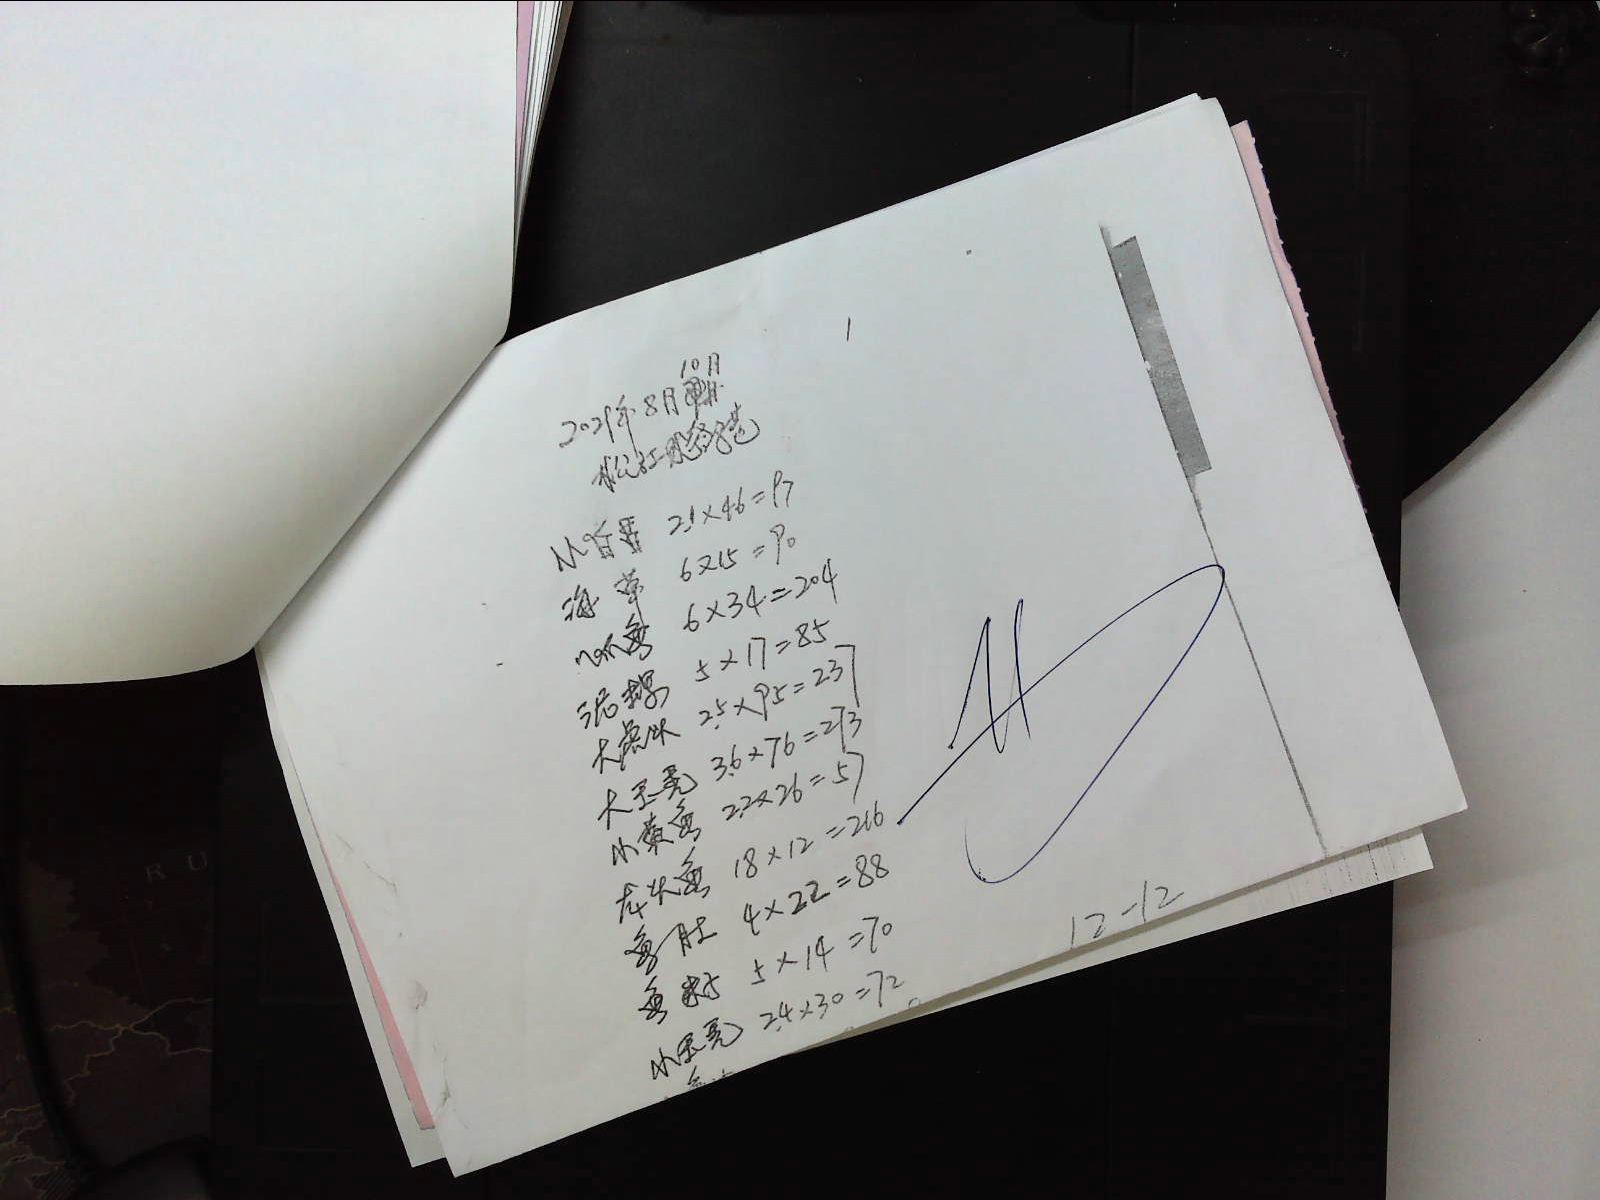 1
10月
2021年8月
松江
21×46=97
海蒂 6×15=90
鱼 6×34=204
泥螺 5×17=85
大虎头 25×95=237
大墨壳 36×76=273
小黄鱼 22×26=57
龙头鱼 18×12=216
鱼肚 4×22=88
鱼籽 5×14=70
小墨壳 24×30=72
12-12